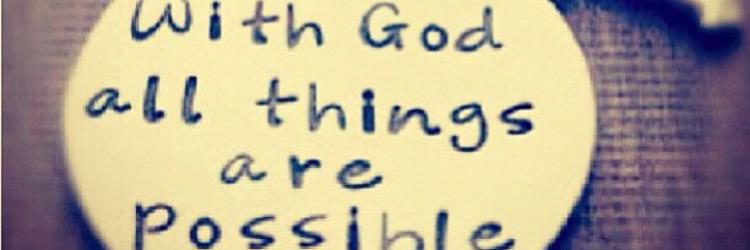 With God
all things
are
Possible